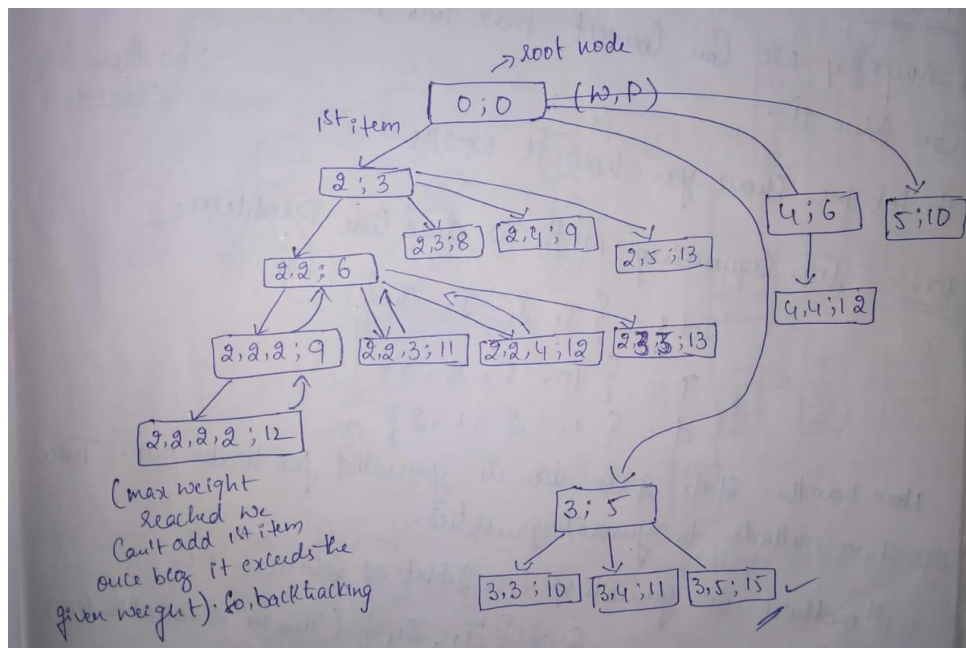 root node
0 ; 0
(W, P)
1st item
2 ; 3
4 ; 6
5 ; 10
2,3 ; 8
2,4 ; 9
2,5 ; 13
2,2 ; 6
4,4 ; 12
2,2,2 ; 9
2,2,3 ; 11
2,2,4 ; 12
; 13
2,2,2,2 ; 12
(max weight
reached we
Can't add 1st item
once bcoz it exceeds the
given weight). So, backtacking
3 ; 5
3,3 ; 10
3,4 ; 11
3,5 ; 15